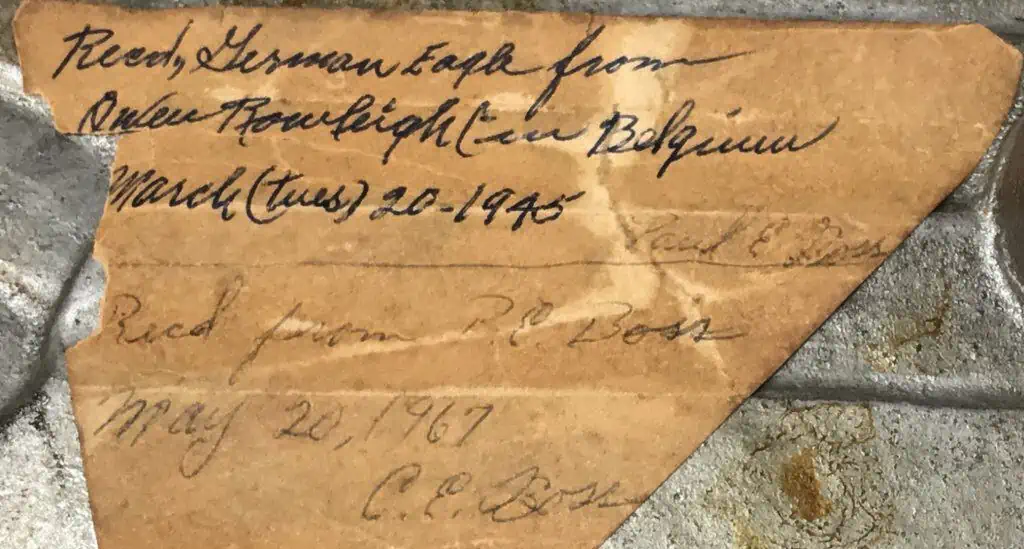 Recd, German Eagle from
Owen Rowleigh (in Belgium
March (tues) 20-1945
Paul E Boss
Recd from P.E. Boss
May 20, 1967
C.E. Boss